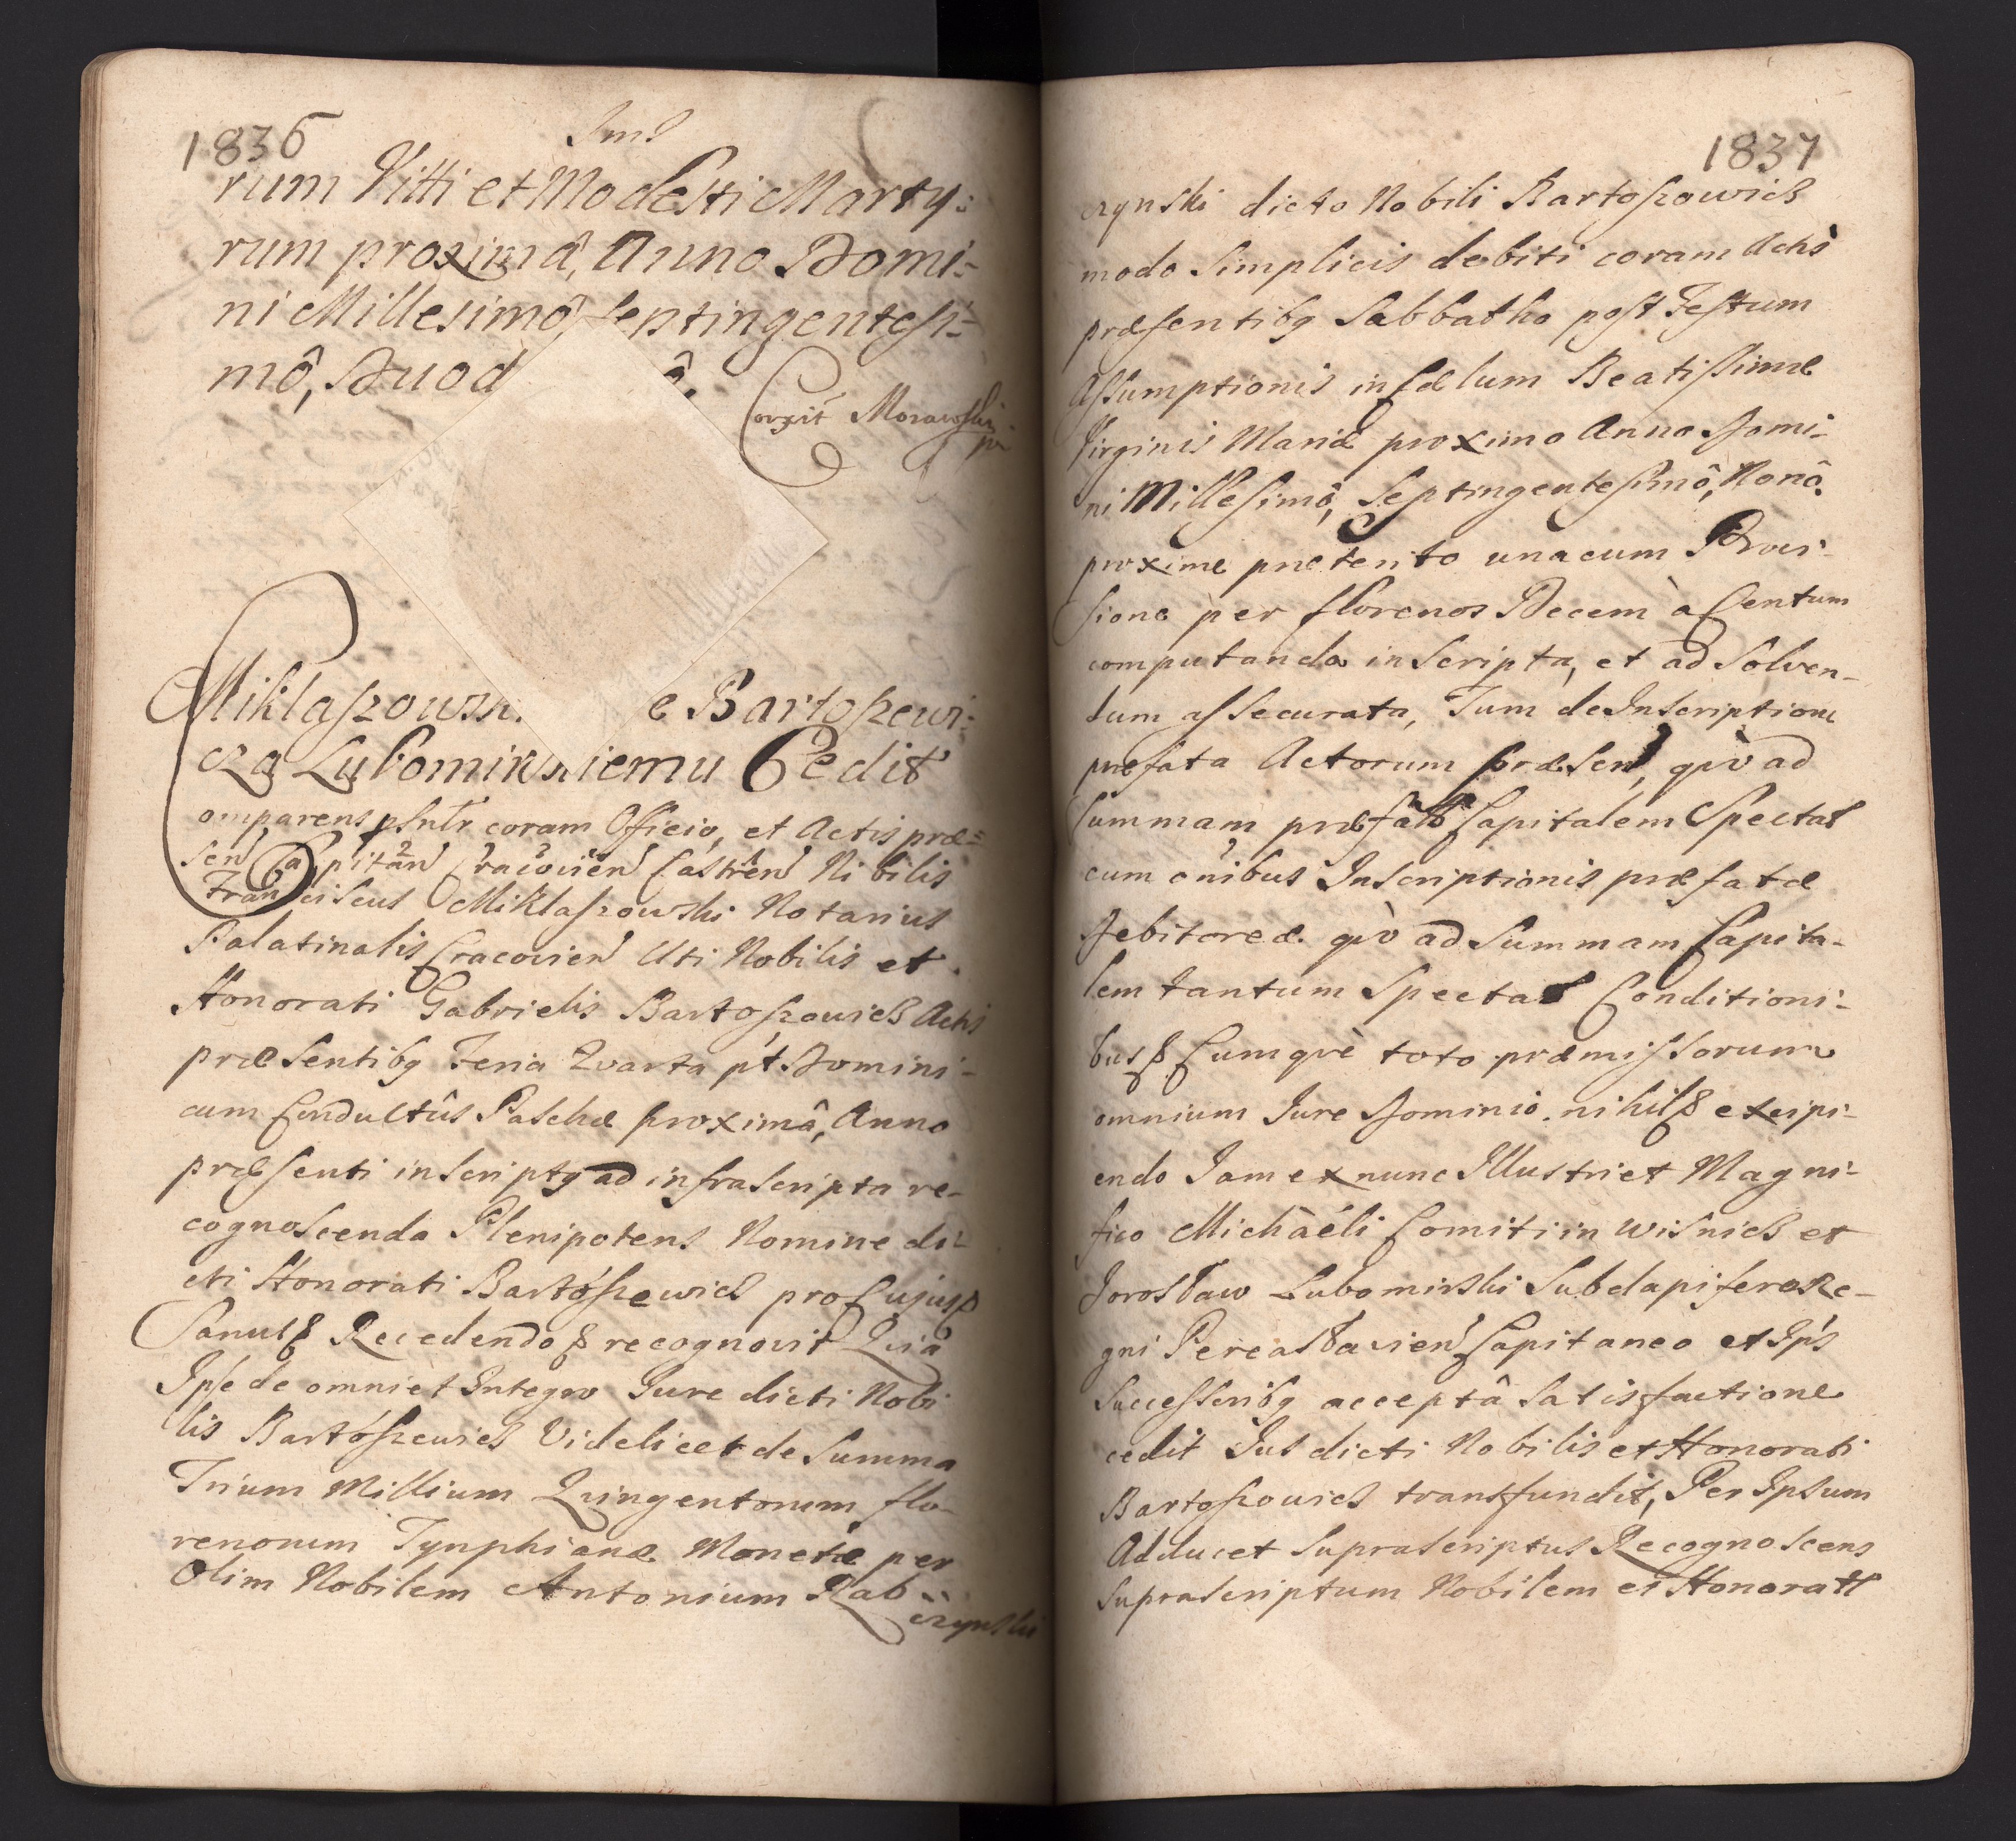 1836
rum Vitti et Modesti Marty:
rum proximâ, Anno Domi:
ni Millesimô Septingentesi:
mô, Duod ô.
Corxit Morawski
Miklaszowsk. e Bartoszewi:
cza Lubomirskiemu Cedit
omparens psntr coram Officio, et Actis præ=
sen Capitan Cracovien Castren Nobilis
Franciscus Miklaszowski Notarius
Palatinalis Cracovien Uti Nobilis et
Honorati Gabrielis Bartoszowicz Actis
præsentibq Feria Qvarta pt Domini-
cam Conductûs Paschæ proximâ, Anno
præsenti inscriptq ad infrascripta re-
cognoscenda Plenipotens Nomine di-
cti Honorati Bartószewicz pro Cujus
Sanus Recedendo recognovit Qvia
Ipse de omni et Integro Jure dicti Nobi
lis Bartószewicz Videlicet de Summa
Trium Millium Qvingentorum flo-
renorum Tynphianæ Monetæ per
Olim Nobilem Antonium Rab-
czynski
1837
czynski dicto Nobili Bartoszowicz
modo Simplicis debiti coram Actis
præsentibq Sabbatho post Festum
Assumptionis in Cælum Beatissimæ
Virginis Mariæ proximo Anno Domi-
ni Millesimô, Septingentesimô, Nonô
proxime præterito unacum Provi-
sione per florenos Decem à Centum
computanda inscripta, et ad Solven-
dum assecurata, Tum de Inscriptione
præfata Actorum præsen, qvò ad
Summam præfatã Capitalem Spectat
cum oñibus Inscriptionis præfatæ
Debitoreæ qvò ad Summam Capita-
lem tantum Spectat Conditioni-
bus Cumqvè toto præmissorum
omnium Jure Dominio nihil excipi-
endo Jam ex nunc Illustri et Magni-
fico Michàéli Comiti in Wisnicz et
Jarosław Lubomirski Subdapifero Re-
gni Pereasłavien Capitaneo et Ips
Successoribq acceptâ Satisfactione
cedit Jus dicti Nobilis et Honorati
Bartoszowicz transfundit, Per Ipsum
Adducet Suprascriptus Recognoscens
Suprascriptum Nobilem et Honorati